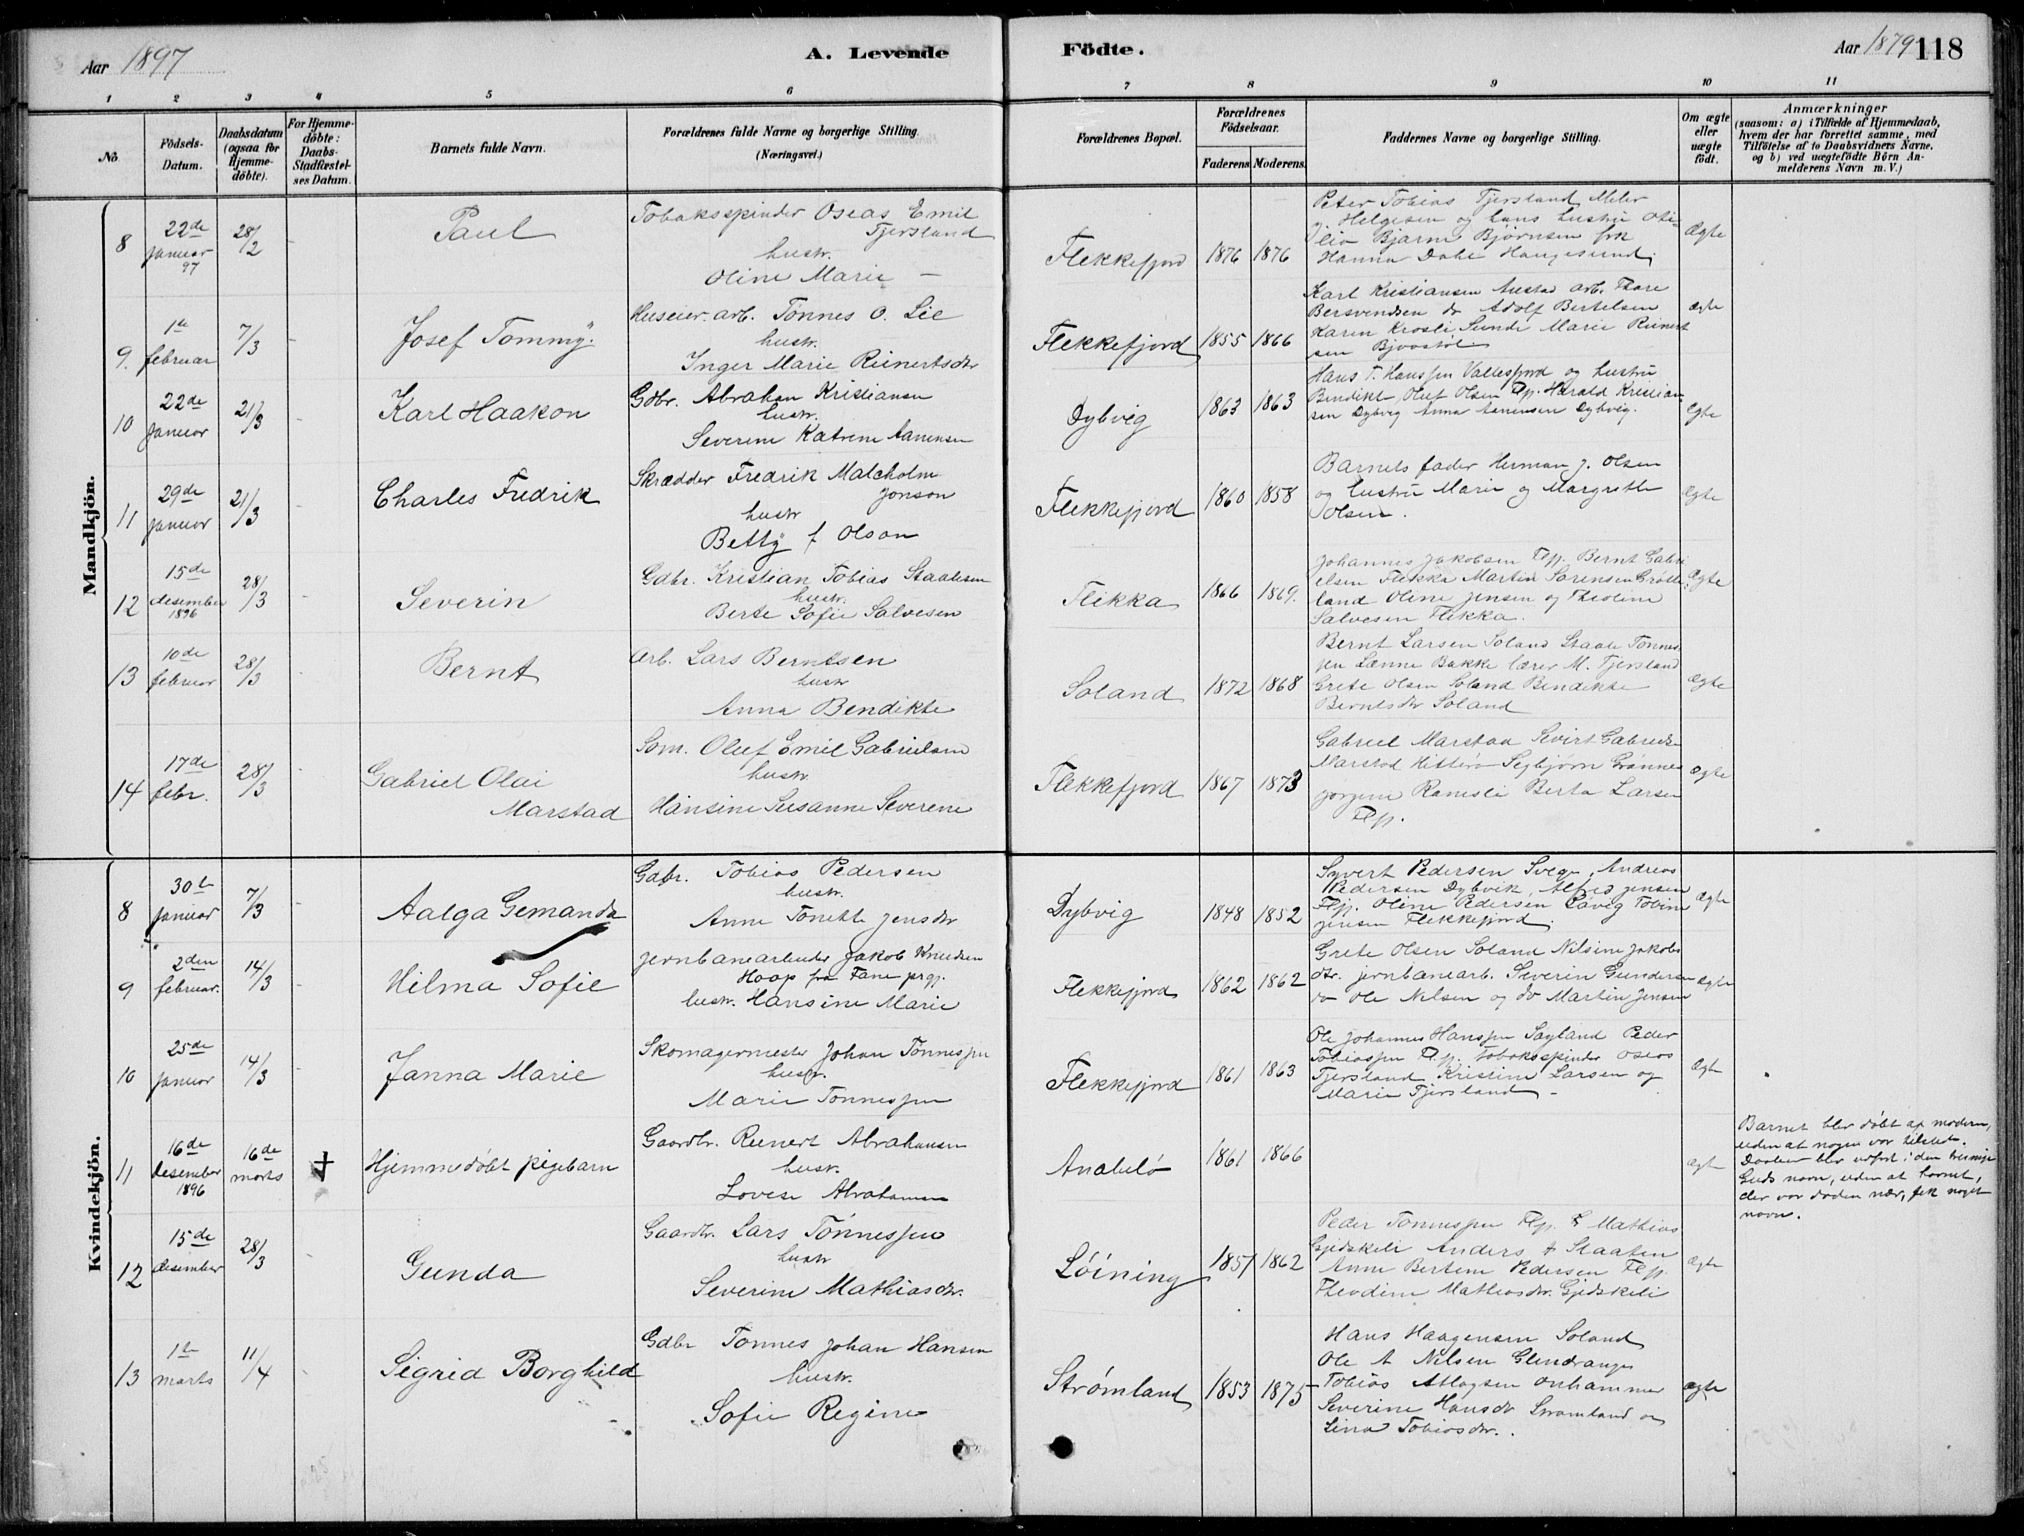 Aar 1897
A. Levende Födte.
Aar 1879 118
1 2 3 4 5 6 7 8 9 10 11
No
Födsels-Datum.
Daabsdatum (ogsaa for Hjemme-döbte).
For Hjemme-döbte: Daabs-Stadfæstel-ses Datum.
Barnets fulde Navn.
Forældrenes fulde Navne og borgerlige Stilling. (Næringsvei.)
Forældrenes Bopæl.
Forældrenes Födselsaar.
Faderens Moderens
Faddernes Navne og borgerlige Stilling.
Om ægte eller uægte födt.
Anmærkninger
(saasom: a) i Tilfælde af Hjemmedaab,
hvem der har forrettet samme, med
Tilföielse af to Daabsvidners Navne,
og b) ved uægtefödte Börn An-
melderens Navn m. V.)
Mandkjön.
8 22de januar 97 28/2 - Paul
Tobaksspinder Oseas Emil
Tjersland
hustr.
Oline Marie —
Flekkefjord 1876 1876
Peter Tobias Tjersland Meler
Helgesen og hans hustru Oti-
lia Bjarne Bjørnsen frk
Hanna Dahl Haugesund.
Ægte
9. 1te februar 7/3 - Josef Tommy.
Huseier. arb. Tønnes O. Lie
hustr.
Inger Marie Reinertsdtr
Flekkefjord 1855 1866
Karl Kristiansen Austad arb. Thore
Bersvendsen do Adolf Bertelsen
Karen Krosli Sunde Marie Reinert
sen
Ægte
10 22de januar 21/3 Karl Haakon
Gdbr. Abraham Kristiansen
hustr.
Severine Katrene Aanensen
Dybvig 1863 1863
Hans T. Hanssen Vallesfjord og hustru
Bendikte, Oluf Olsen Flfj. Harald Kristian
sen Dybvig Anna Aanensen Dybvig.
Ægte
11 29de januar 21/3 Charles Fredrik
Skrædder Fredrik Malcholm
Jonson
hustr
Betty f Olson
Flekkefjord 1860 1858
Barnets fader Herman J. Olsen
og hustru Marie og Margrethe
Olsen.
Ægte
12 15de desember 1896 28/3 Severin
Gdbr. Kristian Tobias Staalesen
hustr.
Berte Sofie Salvesen
Flikka 1866 1869.
Johannes Jakobsen Flfj. Bernt Gabri
elsen Flikka Martin Sørensen Grøtte
land Oline Jensen og Theoline
Salvesen Flikka.
Ægte
13 10de februar 28/3 Bernt
Arb. Lars Berntsen
hustr
Anna Bendikte
Soland 1872 1868
Bernt Larsen Soland Staale Tønnes
sen Lænne Bakke lærer M. Tjersland
Grete Olsen Soland Bendikte
Berntsdtr Soland
Ægte
14 17de febr. 28/3 Gabriel Olai
Marstad
Søm. Oluf Emil Gabrielsen
hustr.
Hansine Susanne Severene
Flekkefjord 1867 1873
Gabriel Marstad Sivert Gabriels
Marstad Hitterø Sigbjørn Grønnes
Jorgine Ramsli Berta Larsen
Flfj.
Ægte
Kvindekjön.
8 30te januar 7/3 Aalga Gemanda
Gdbr. Tobias Pedersen
hustr.
Anne Tonette Jensdtr
Dybvig 1848 1852
Syvert Pedersen Svege, Andreas
Pedersen Dybvik, Alfred Jensen
Flfj. Oline Pedersen Løvig Tobine
Jensen Flekkefjord.
Ægte
9 2den februar. 14/3 Hilma Sofie
Jernbanearbeider Jakob Knudsen
Hoop fra Fane prgj.
hustr. Hansine Marie
Flekkefjord 1862 1862
Grete Olsen Soland Nilsine Jakobs
dtr. jernbanearb. Severin Gundersen
do Ole Nilsen og do Martin Jensen
Ægte
10 25de januar 14/3 Janna Marie
Skomagermester Johan Tønnessen
hustr.
Marie Tønnessen
Flekkefjord 1861 1863
Ole Johannes Hanssen Søyland Peder
Tobiassen Flfj. tobaksspinder Oseas
Tjersland Kristine Larsen og
Marie Tjersland —
Ægte
11 16de desember 1896 16de marts + Hjemmedøbt pigebarn
Gaardbr. Reinert Abrahamsen
hustr.
Lovise Abrahamsen
Anabelø 1861 1866
ægte
Barnet blev døbt af moderen,
uden at nogen var tilstede.
Daaben blev udført i den treenige
Guds navn, uden at barnet,
der var døden nær, fik noget
navn.
12 15de desember 28/3 Gunda
Gaardbr. Lars Tønnessen
hustr
Severine Mathiasdtr.
Löining 1857 1862
Peder Tønnessen Flfj. & Mathias
Gjedskeli Anders A Staalen
Anne Bertine Pedersen Flfj.
Theodine Mathiasdtr. Gjedskeli
Ægte
13 1te marts 11/4 Sigrid Borghild
Gdbr Tønnes Johan Hansen
hustr.
Sofie Regine
Strømland 1853 1875
Hans Haagensen Soland
Ole A Nilsen Glendrange
Tobias Atlagsen Onhammer
Severine Hansdtr Strømland og
Lina Tobiasdtr.
ægte